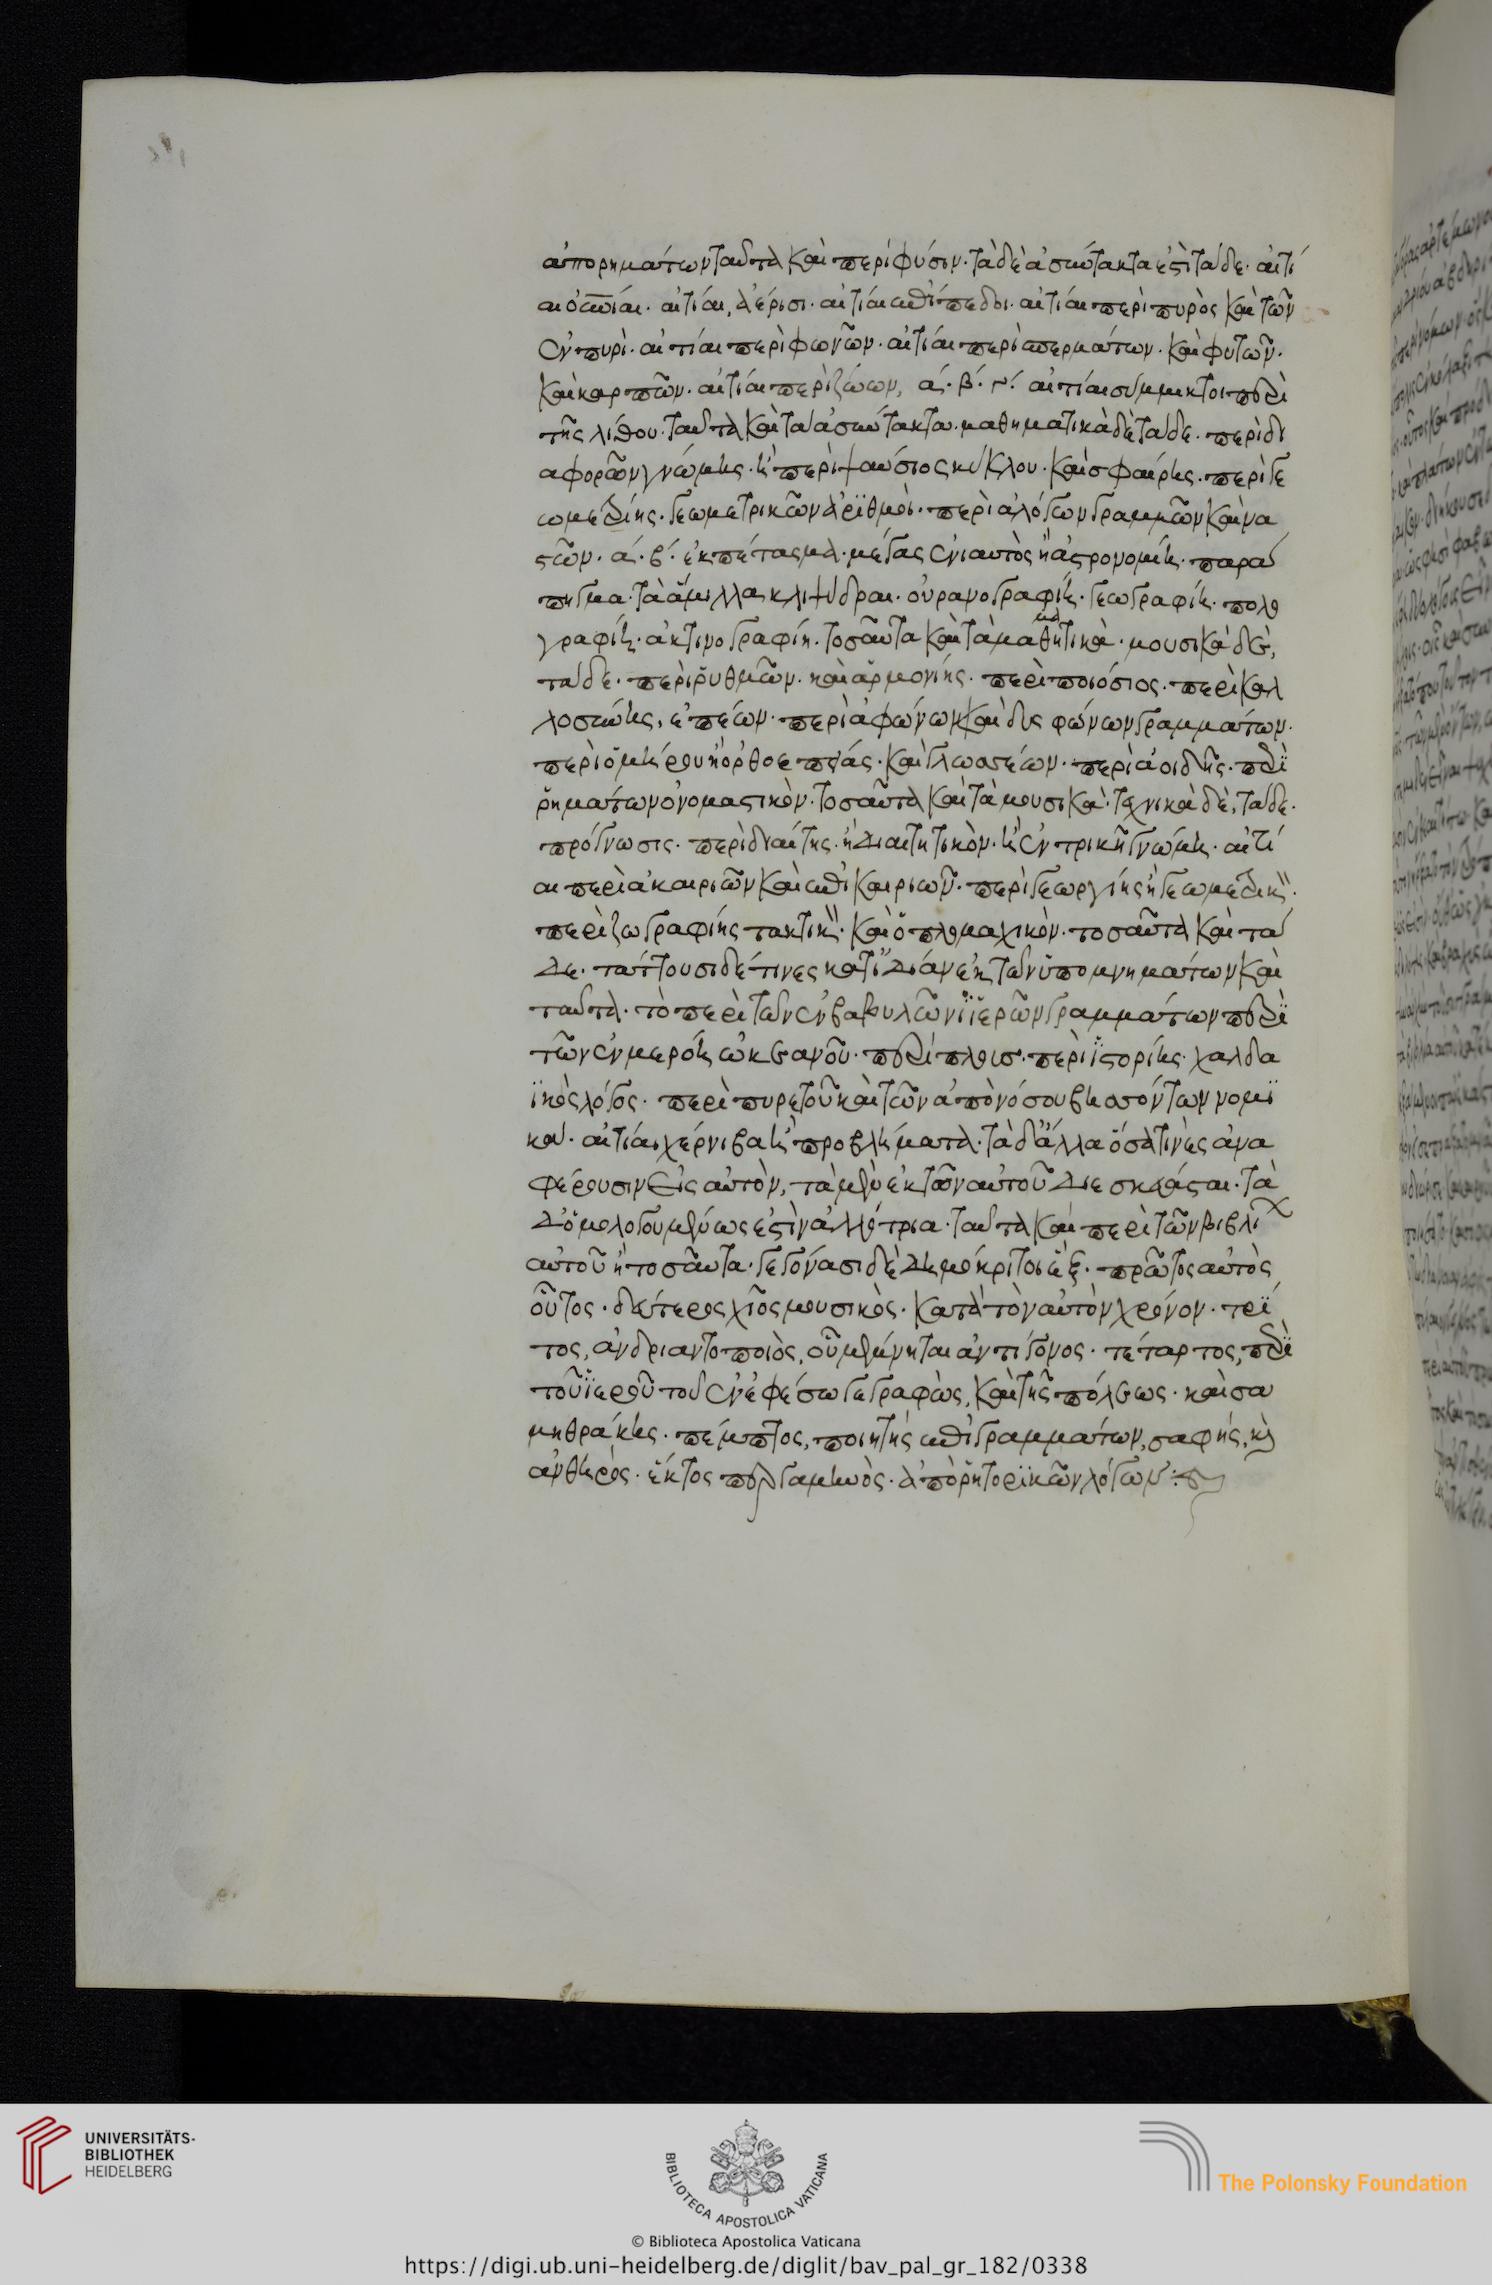 ἀπορημάτων ταῦτα καὶ περὶ φύσιν· τὰ δὲ ἀσύντακτα ἐστὶ τάδε· αἰτί
αι οὐράνιαι· αἰτίαι, ἀέριοι· αἰτίαι ἐπίπεδοι· αἰτίαι περὶ πυρὸς καὶ τῶν
ἐν πυρὶ· αἰτίαι περὶ φωνῶν· αἰτίαι περὶ σπερμάτων· καὶ φυτῶν·
καὶ καρπῶν· αἰτίαι περὶ ζώων, α´· β´· γ´· αἰτίαι σύμμικτοι περὶ
τῆς λίθου· ταῦτα καὶ τὰ ἀσύντακτα· μαθηματικὰ δὲ τάδε· περὶ δι
αφορῶν γνώμης· ἢ περὶ ψαύσιος κύκλου· καὶ σφαίρης· περὶ γε
ωμετρίης· γεωμετρικῶν ἀριθμοὶ· περὶ ἀλόγων γραμμῶν καὶ να
στῶν· α´· β´· ἐκπέτασμα· μέγας ἐνιαυτὸς ἢ ἀστρονομίη· παρά
πηγμα· τὰ ἄμιλλα κλιψύδραι· οὐρανογραφίη· γεωγραφίη· πολο
γραφίη· ἀκτινογραφίη· τοσαῦτα καὶ τὰ μαθητικὰ· μουσικὰ δὲ,
μα
τάδε· περὶ ῥυθμῶν· καὶ ἁρμονίης· περὶ ποιόσιος· περὶ καλ
λοσύνης, ἐπέων· περὶ ἀφώνων καὶ δυσφώνων γραμμάτων·
περὶ ὁμήρου ἢ ὀρθοεπείας· καὶ γλωσσέων· περὶ ἀοιδῆς· περὶ
ῥημάτων ὀνομαστικὸν· τοσαῦτα καὶ τὰ μουσικὰ· τεχνικὰ δὲ, τάδε·
πρόγνωσις· περὶ διαίτης· ἢ διαιτητικὸν· ἢ ἐντρικὴ γνώμη· αἰτί
αι περὶ ἀκαιριῶν καὶ ἐπικαιριῶν· περὶ γεωργίης ἢ γεωμετρικὴ·
περὶ ζωγραφίης τακτικὴ· καὶ ὁπλομαχικὸν· τοσαῦτα καὶ τά
δε· τάττουσι δέ τινες κατ' ἰδίαν ἐκ τῶν ὑπομνημάτων καὶ
ταῦτα· τὸ περὶ τῶν ἐν βαβυλῶνι ἱερῶν γραμμάτων περὶ
τῶν ἐν μερόη ὠκεανοῦ· περίπλοισ· περὶ ἱστορίης· χαλδα
ϊκὸς λόγος· περὶ πυρετοῦ καὶ τῶν ἀπὸ νόσου βησσόντων νομι
κά· αἰτίαι χέρνιβα ἢ προβλήματα· τὰ δ' ἄλλα ὅσα τινὲς ἀνα
φέρουσιν εἰς αὐτὸν, τὰ μὲν ἐκ τῶν αὐτοῦ διεσκεύασται· τὰ
δ' ὁμολογουμένως ἐστὶν ἀλλότρια· ταῦτα καὶ περὶ τῶν βιβλί
αὐτοῦ ἢ τοσαῦτα· γεγόνασι δὲ δημόκριτοι ἕξ· πρῶτος αὐτὸς
οὗτος· δεύτερος χῖος μουσικὸς· κατὰ τὸν αὐτὸν χρόνον· τρί
τος, ἀνδριαντοποιὸς, οὗ μέμνηται ἀντίγονος· τέταρτος, περὶ
τοῦ ἱεροῦ τοῦ ἐν ἐφέσω γεγραφὼς, καὶ τῆς πόλεως· καὶ σα
μηθράκης· πέμπτος, ποιητὴς ἐπιγραμμάτων, σαφὴς, καὶ
ἀνθηρός· ἕκτος περγαμηνὸς· ἀπὸ ῥητορικῶν λόγων:
UNIVERSITÄTS-
BIBLIOTHEK
HEIDELBERG
BIBLIOTECA APOSTOLICA VATICANA
The Polonsky Foundation
© Biblioteca Apostolica Vaticana
https://digi.ub.uni-heidelberg.de/diglit/bav_pal_gr_182/0338